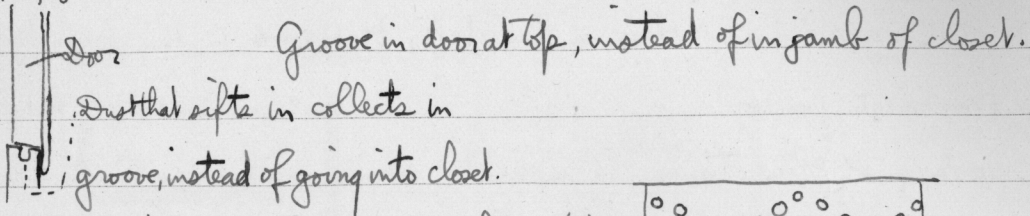 Door Groove in door at top, instead of in jamb of closet.
Dust that sifts in collects in
groove, instead of going into closet.